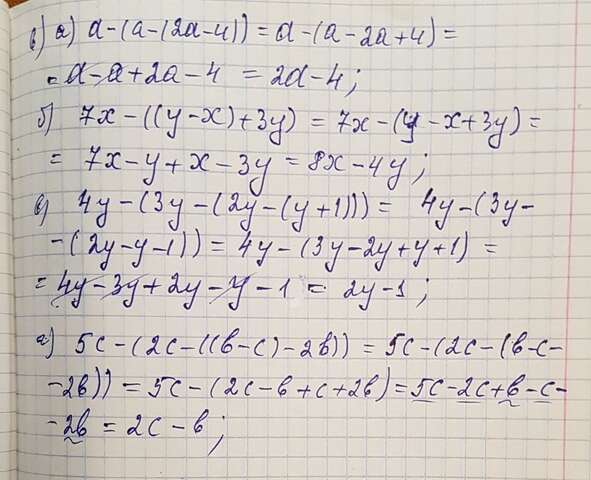 в) а) a-(a-(2a-4)) = a-(a-2a+4) =
= a-a+2a-4 = 2a-4;
б) 7x-((y-x)+3y) = 7x-(y-x+3y) =
= 7x-y+x-3y = 8x-4y;
в) 4y-(3y-(2y-(y+1))) = 4y-(3y-
-(2y-y-1)) = 4y-(3y-2y+y+1) =
= 4y-3y+2y-y-1 = 2y-1;
г) 5c-(2c-((b-c)-2b)) = 5c-(2c-(b-c-
-2b)) = 5c-(2c-b+c+2b) = 5c-2c+b-c-
-2b = 2c-b;